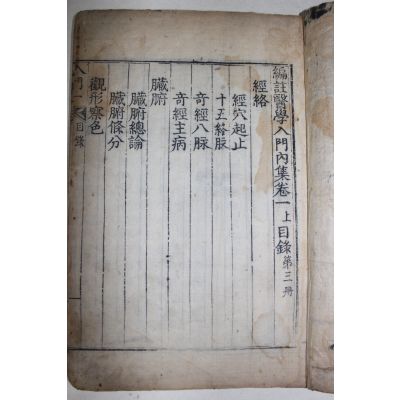 編註醫學入門內集卷一上目錄 第三册
經絡
經穴起止
十五絡脉
奇經八脉
奇經主病
臟腑
臟腑總論
臟腑條分
觀形察色
入門一 目錄